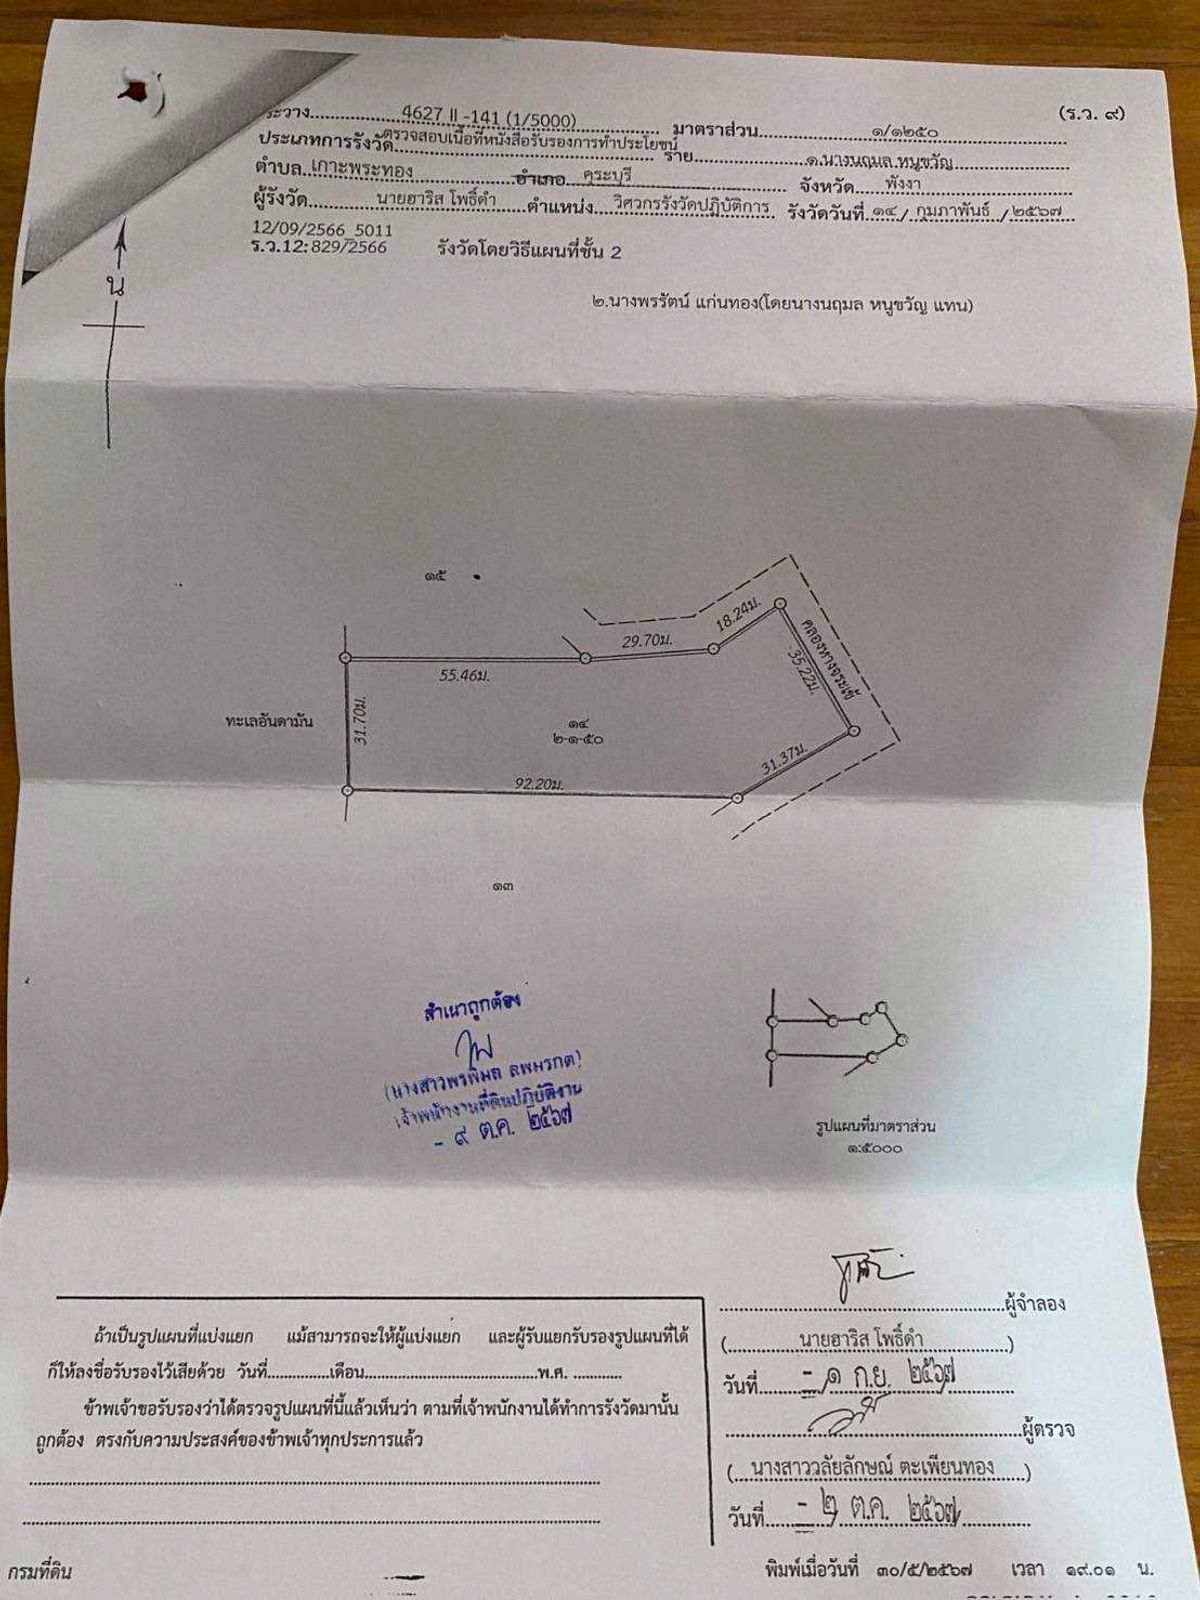 (ร.ว. ๙)
ระวาง 4627 II -141 (1/5000) มาตราส่วน ๑/๑๒๕๐
ประเภทการรังวัด ตรวจสอบเนื้อที่หนังสือรับรองการทำประโยชน์ ราย ๑.นางนฤมล หนูขวัญ
ตำบล เกาะพระทอง อำเภอ คุระบุรี จังหวัด พังงา
ผู้รังวัด นายฮาริส โพธิ์ดำ ตำแหน่ง วิศวกรรังวัดปฏิบัติการ รังวัดวันที่ ๑๔ / กุมภาพันธ์ / ๒๕๖๗
12/09/2566 5011
ร.ว.12: 829/2566 รังวัดโดยวิธีแผนที่ชั้น 2
น
๒.นางพรรัตน์ แก่นทอง(โดยนางนฤมล หนูขวัญ แทน)
๑๕
18.24ม.
29.70ม.
คลองหางจระเข้
55.46ม.
35.22ม.
31.70ม.
ทะเลอันดามัน
๑๔
๒-๑-๕๐
31.37ม.
92.20ม.
๑๓
สำเนาถูกต้อง
เจ้าพนักงานที่ดินปฏิบัติงาน
- ๙ ต.ค. ๒๕๖๗
รูปแผนที่มาตราส่วน
๑:๕๐๐๐
ผู้จำลอง
(นายฮาริส โพธิ์ดำ)
วันที่ - ๑ ก.ย. ๒๕๖๗
ผู้ตรวจ
(นางสาววลัยลักษณ์ ตะเพียนทอง)
วันที่ - ๒ ต.ค. ๒๕๖๗
ถ้าเป็นรูปแผนที่แบ่งแยก แม้สามารถจะให้ผู้แบ่งแยก และผู้รับแยกรับรองรูปแผนที่ได้
ก็ให้ลงชื่อรับรองไว้เสียด้วย วันที่...............เดือน...............พ.ศ. ............
ข้าพเจ้าขอรับรองว่าได้ตรวจรูปแผนที่นี้แล้วเห็นว่า ตามที่เจ้าพนักงานได้ทำการรังวัดมานั้น
ถูกต้อง ตรงกับความประสงค์ของข้าพเจ้าทุกประการแล้ว
กรมที่ดิน
พิมพ์เมื่อวันที่ ๓๐/๕/๒๕๖๗ เวลา ๑๙.๐๑ น.